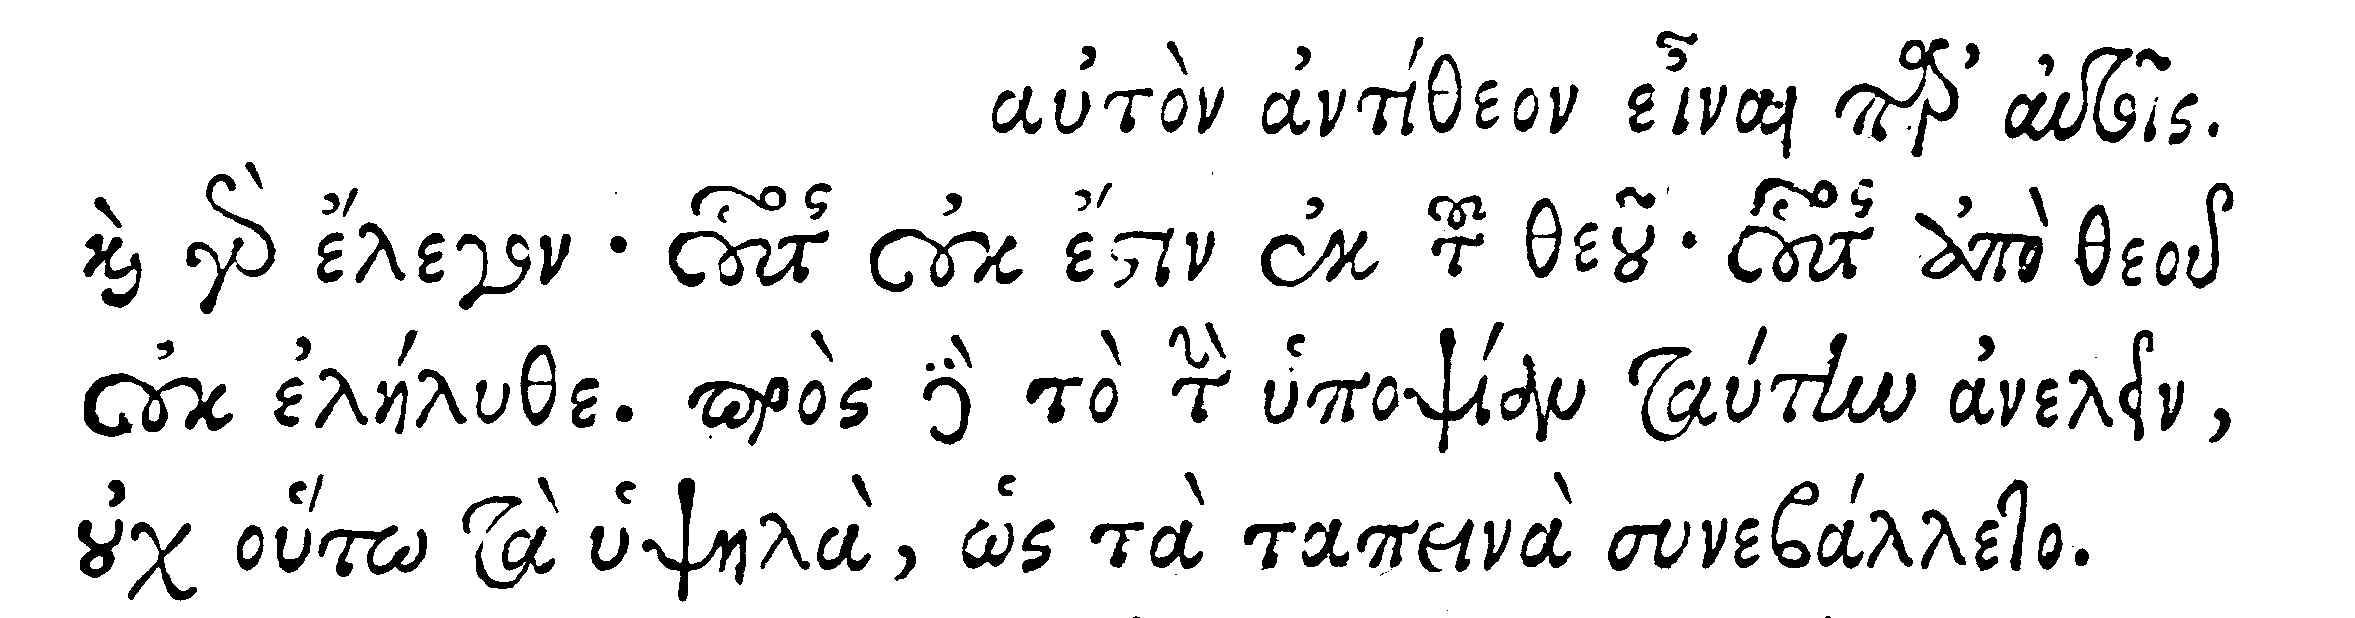 αὐτὸν ἀντίθεον εἶναι παρ' αὐτοῖς.
καὶ γὰρ ἔλεγον· οὗτος οὐκ ἔστιν ἐκ τοῦ θεοῦ· οὗτος ἀπὸ θεοῦ
οὐκ ἐλήλυθε. πρὸς δὲ τὸ τὴν ὑποψίαν ταύτην ἀνελεῖν,
οὐχ οὕτω τὰ ὑψηλὰ, ὡς τὰ ταπεινὰ συνεβάλλετο.